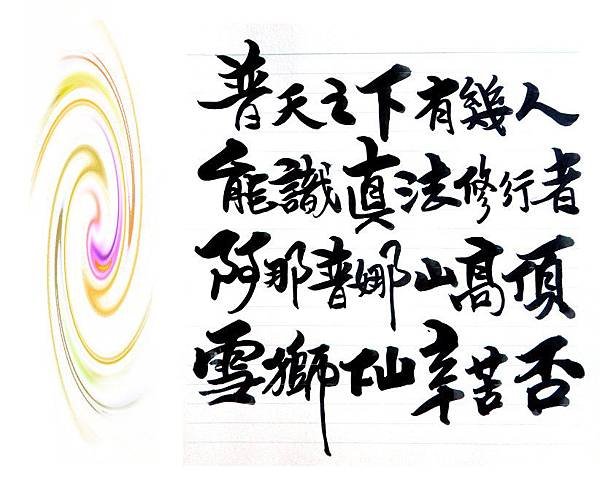 普天之下有幾人
能識真法修行者
阿那普娜山高頂
雪獅下山辛苦否